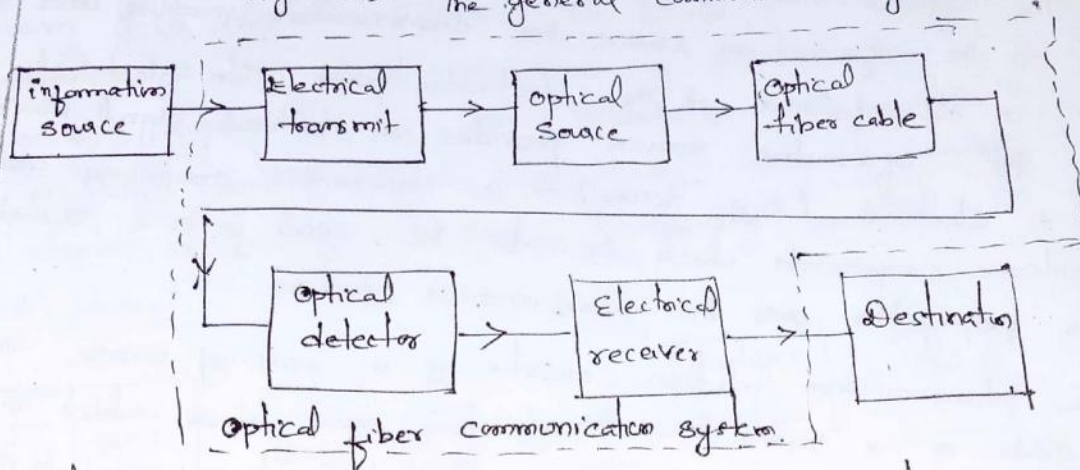 the general
information
source
Electrical
transmit
optical
Source
Optical
fiber cable
Optical
detector
Electrical
receiver
Destination
Optical fiber communication system.